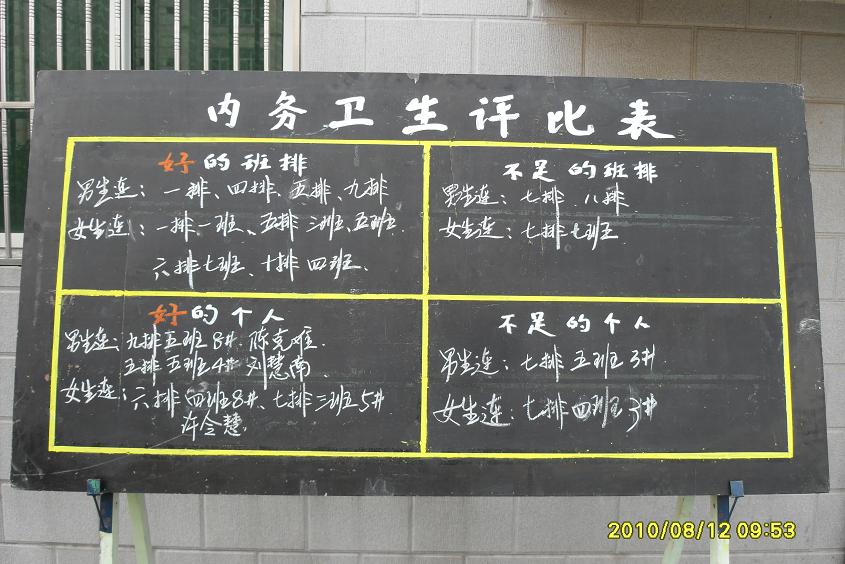 内务卫生评比表
好的班排
男生连：一排、四排、五排、九排
女生连：一排一班、五排二班、五班
六排七班、十排四班、
不足的班排
男生连：七排 八排
女生连：七排七班
好的个人
男生连：九排五班8# 陈克难
五排五班4# 刘慧南
女生连：六排四班8#、七排三班5#
许令慧
不足的个人
男生连：七排五班3#
女生连：七排四班3#
2010/08/12 09:53